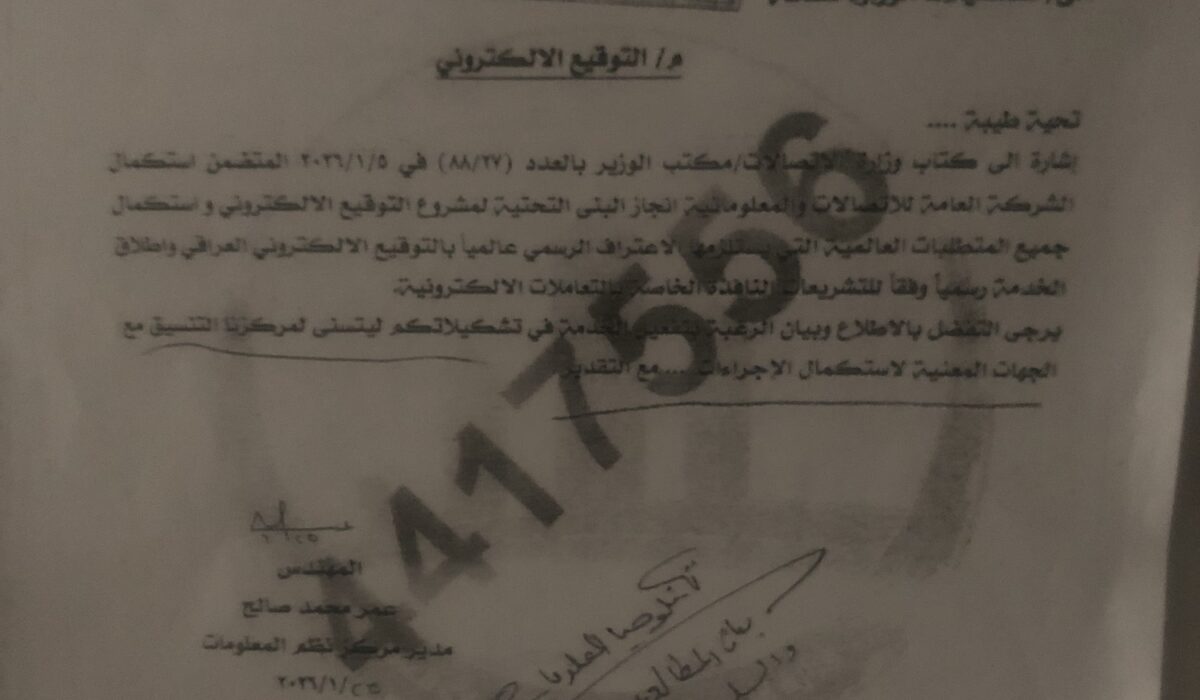 م/ التوقيع الالكتروني
تحية طيبة ....
إشارة الى كتاب وزارة الاتصالات/مكتب الوزير بالعدد (٨٨/٢٧) في ٢٠٢٦/١/٥ المتضمن استكمال
الشركة العامة للاتصالات والمعلوماتية انجاز البنى التحتية لمشروع التوقيع الالكتروني و استكمال
جميع المتطلبات العالمية التي يستلزمها الاعتراف الرسمي عالمياً بالتوقيع الالكتروني العراقي واطلاق
الخدمة رسمياً وفقاً للتشريعات النافذة الخاصة بالتعاملات الالكترونية.
يرجى التفضل بالاطلاع وبيان الرغبة بتفعيل الخدمة في تشكيلاتكم ليتسنى لمركزنا التنسيق مع
الجهات المعنية لاستكمال الإجراءات .... مع التقدير
4417556
المهندس
عمر محمد صالح
مدير مركز نظم المعلومات
٢٠٢٦/١/٢٥